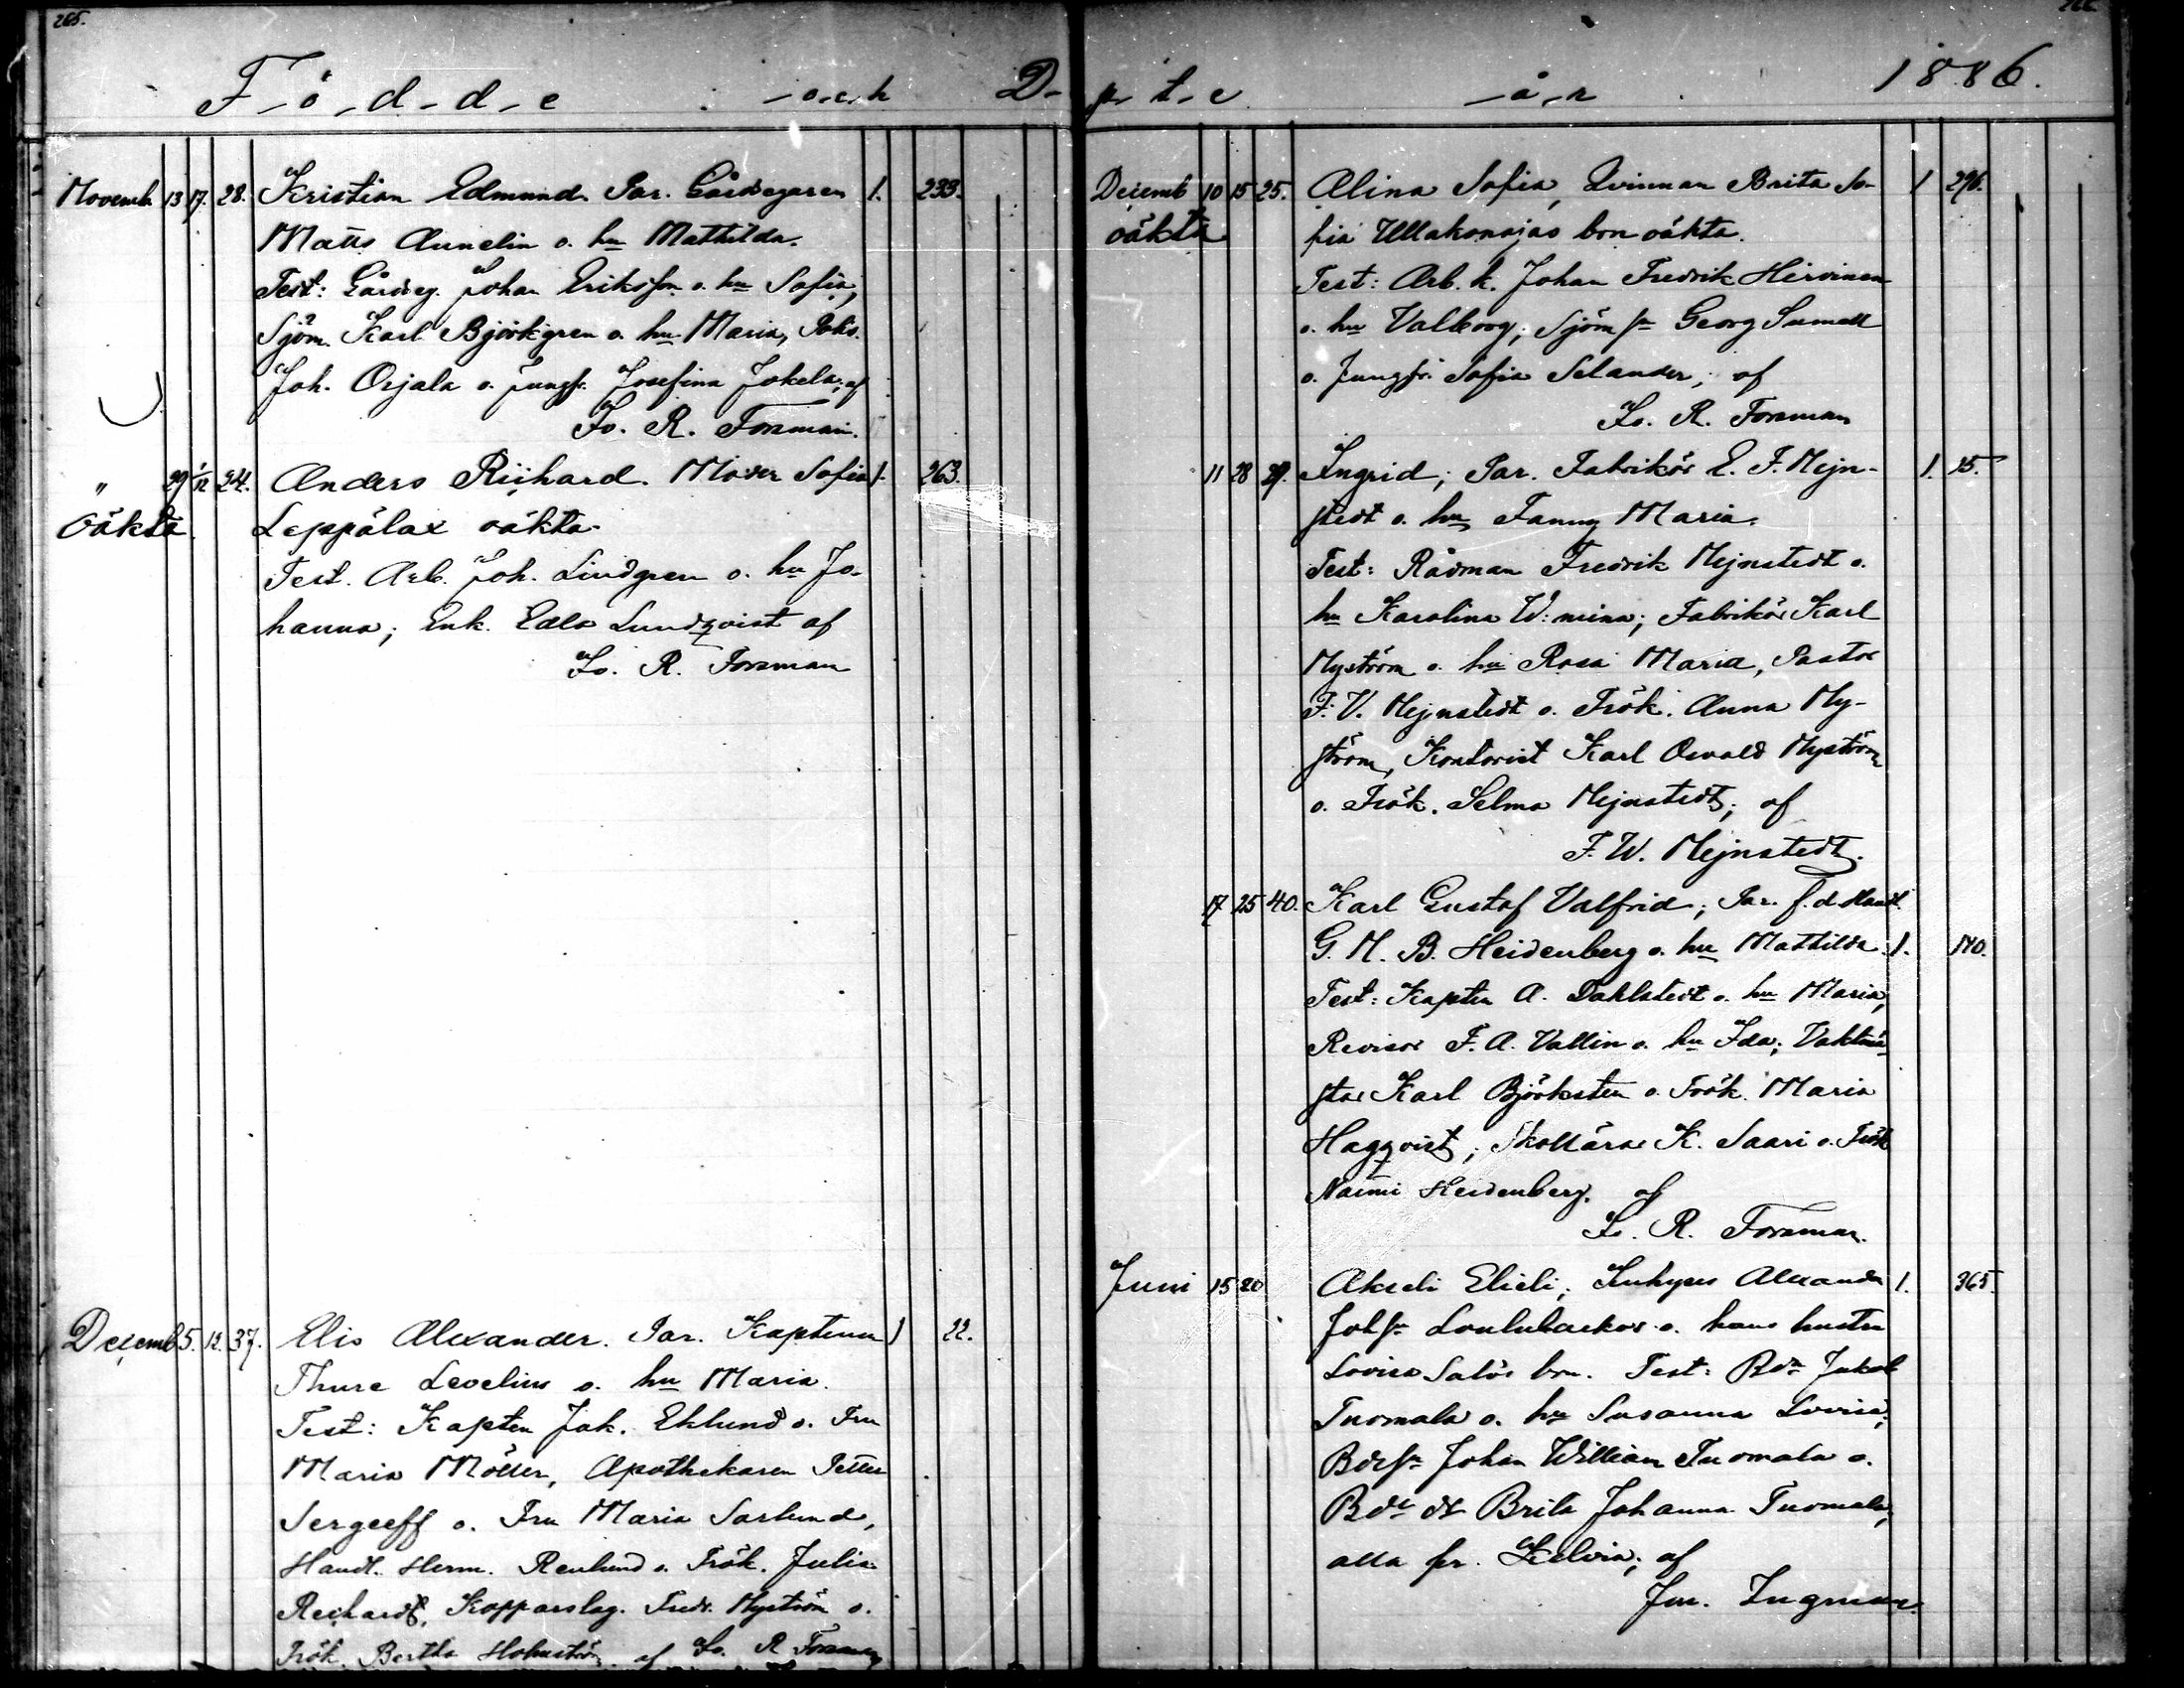 265.
F-ö-d-d-e -o-c-h D-
Novemb 13 17. 28. Kristian Edmund. Par. Gårdegaren 1. 233.
Matts Annelin o. hu Mathilda.
Test: Gårdeg. Johan Eriksson o. hu Sofia,
Sjöm. Karl Björkgren o. hu Maria,
Joh. Orjala o. Jungfr. Josefina Jokela; af
Fo. R. Forsman.
" 29 1/12 24. Anders Rikhard. Moder Sofia 1. 263.
Oäkta Leppälax oäkta.
Test. Arb. Joh. Lindgren o. hu Jo-
hanna; Enk. Edla Lundqvist af
Fo. R. Forsman
Decemb 5. 12. 37. Elis Alexander. Par. Kaptenen 1 22.
Thure Levelius o. hu Maria.
Test: Kapten Jak. Eklund o. Fru
Maria Möller, Apothekaren Petter
Sergeeff o. Fru Maria Sarlund,
Handl. Herm. Renlund o. Frök. Julia
Reichardt, Kopparslag. Fredr. Nyström o.
Frök. Bertha Holmström af Fo. R Forsman
266.
p-t-e -å-r 1886.
Decemb 10 15 25. Alina Sofia, Qvinnan Brita So- 1 296.
oäkta fia Ullakonojas brn oäkta.
Test: Arb. k. Johan Fredrik Hirvinen
o. hu Valborg; Sjöm sn Georg Sumell
o. Jungfr. Sofia Selander; af
Fo. R. Forsman
11 28 29. Ingrid; Par. Fabrikör E. F. Nejn- 1. 15.
stedt o. hu Fanny Maria.
Test: Rådman Fredrik Nejnstedt o.
hu Karolina W:mina; Fabrikör Karl
Nyström o. hu Rosa Maria, Pastor
F. V. Nejnstedt o. Frök. Anna Ny-
ström, Kontorist Karl Osvald Nyström
o. Frök. Selma Nejnstedt; af
F. W. Nejnstedt.
17 25 40. Karl Gustaf Valfrid; Par. f.d. Handl.
G. N. B. Heidenberg o. hu Mathilda 1. 140.
Test: Kapten A. Dahlstedt o. hu Maria,
Revisor F. A. Vallin o. hu Ida; Vaktmä-
star Karl Björksten o. Frök. Maria
Hagqvist; Skollärar K. Saari o. Frök
Naimi Heidenberg. af
Fo. R. Forsman.
Juni 15 20 Akseli Elieli; Inhyses Alexander 1. 365.
Joh sn Loulubackor o. hans hustru
Lovisa Salös brn. Test: Bdn Jakob
Tuomala o. hu Susanna Lovisa;
Bde sn Johan William Tuomala o.
Bde dr Brita Johanna Tuomala;
alla fr. Kelviå; af
Jm. Ingman.